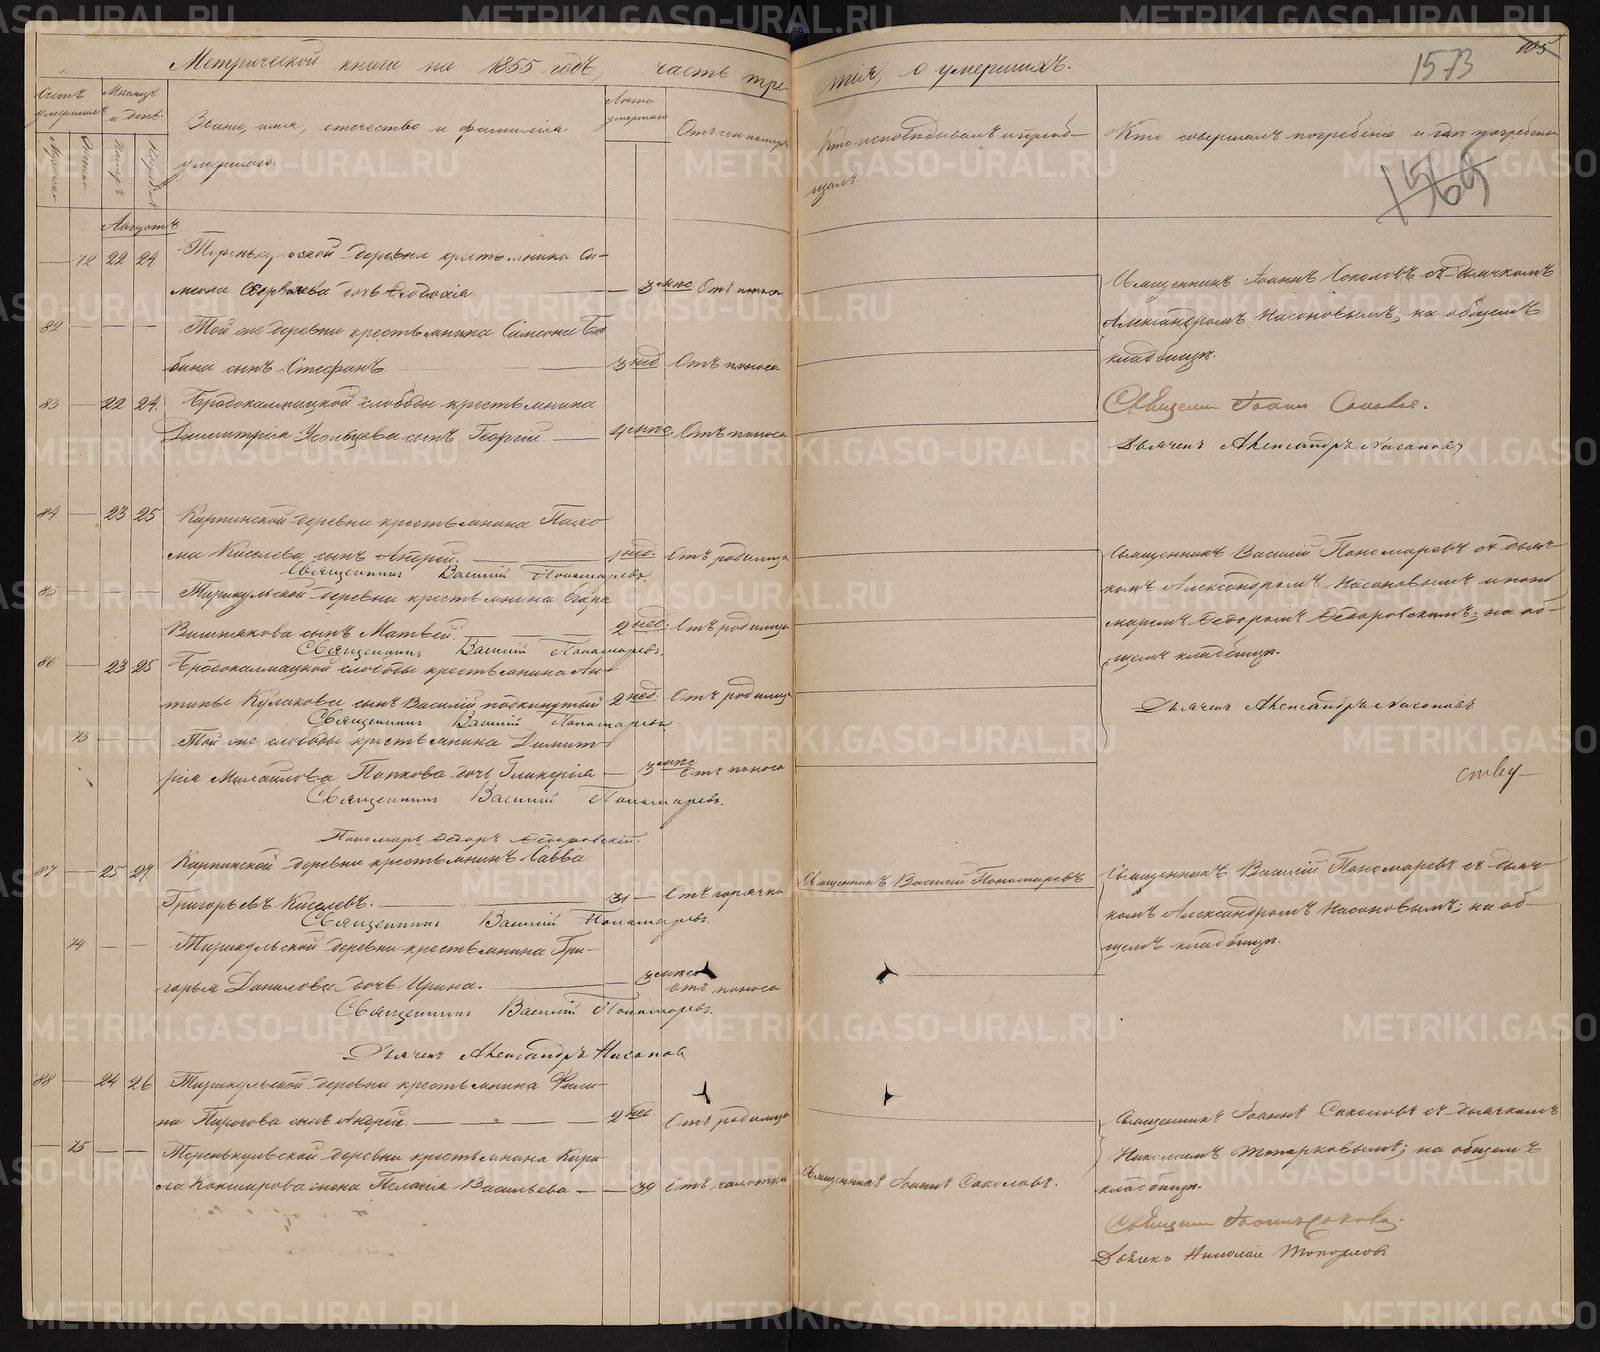 Метрической книги на 1855 годъ, часть третія, о умершихъ.
105
1573
Счетъ умершихъ
Мѣсяцъ и день.
Званіе, имя, отчество и фамилія умершаго.
Лѣта умершаго
Отъ чего померъ
Кто исповѣдывалъ и пріобщалъ.
Кто совершалъ погребеніе и гдѣ погребены
1565
Августъ.
72 22 24 деревни крестьянина Си-
меона дочь Ѳеодосія 3 мѣс Отъ поноса
82 — — — Той же деревни крестьянина Симеона Ба-
бина сынъ Стефанъ 3 нед Отъ поноса
83 — 22 24 Бродокалмацкой слободы крестьянина
Димитрія Усольцева сынъ Георгій. 4 мѣс. Отъ поноса
Священникъ Іоаннъ Соколовъ съ дьячкомъ
Александромъ Насоновымъ; на общемъ
кладбищѣ.
Священникъ Іоаннъ Соколовъ.
Дьячекъ Александръ Насоновъ
84 — 23 25 Карпинской деревни крестьянина Пахо-
ма Киселева сынъ Андрей. 1 нед. Отъ родимца
Священникъ Василій Пономаревъ.
85 — — — деревни крестьянина Егора
Вишнякова сынъ Матвей. 2 нед. Отъ родимца
Священникъ Василій Пономаревъ.
86 — 23 25 Бродокалмацкой слободы крестьянина Ан-
типы Кулакова сынъ Василій подкинутый 2 нед. Отъ родимца
Священникъ Василій Пономаревъ
73 — — Той же слободы крестьянина Димит-
рія Михайлова Попкова дочь Гликерія — 3 мѣс Отъ поноса
Священникъ Василій Пономаревъ.
Пономарь Ѳедоръ Ѳедоровскій.
Священникъ Василій Пономаревъ съ дьяч-
комъ Александромъ Насоновымъ и поно
маремъ Ѳедоромъ Ѳедоровскимъ; на об-
щемъ кладбищѣ.
Дьячекъ Александръ Насоновъ
87 — 25 27 Карпинской деревни крестьянинъ Савва
Григорьевъ Киселевъ. 31 — Отъ горячки
Священникъ Василій Пономаревъ
Священникъ Василій Пономаревъ.
74 — — деревни крестьянина Гри-
горья Данилова дочь Ирина. 3 мѣс Отъ поноса
Священникъ Василій Пономаревъ.
Дьячекъ Александръ Насоновъ
Священникъ Василій Пономаревъ съ дьяч-
комъ Александромъ Насоновымъ; на об-
щемъ кладбищѣ.
88 — 24 26 деревни крестьянина Фили-
па Пирогова сынъ Андрей. 2 нед Отъ родимца
— 75 — — деревни крестьянина Кири-
ла жена Пелагія Васильева — 39 Отъ чахотки
Священникъ Іоаннъ Соколовъ.
Священникъ Іоаннъ Соколовъ съ дьячкомъ
Николаемъ Топорковымъ; на общемъ
кладбищѣ.
Священникъ Іоаннъ Соколовъ.
Дьячекъ Николай Топорковъ
METRIKI.GASO-URAL.RU